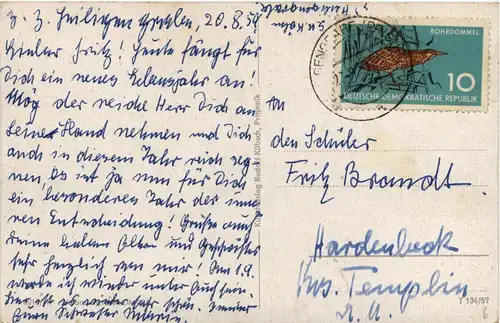 z. Z. Heiligen 20.8.59
Lieber Fritz! Heute fängt für
Dich ein neues Lebensjahr an!
Mög der reiche Herr Dich an
Seine Hand nehmen und Dich
auch in diesem Jahr reich seg-
nen. Es ist ja nun für Dich
ein besonderes Jahr der inne-
ren Entscheidung! Grüße auch
Deine lieben Eltern und Geschwister
sehr herzlich von mir! Am 1.9.
werde ich wieder unter Euch sein.
ist es wieder sehr schön. In
Eure Schwester Maria.
Verlag Rudolf Kübsch, Pritzwalk
ROHRDOMMEL
10
DEUTSCHE DEMOKRATISCHE REPUBLIK
An
den Schüler
Fritz Brandt.
Hardenbeck
Krs. Templin
T 194/57
6